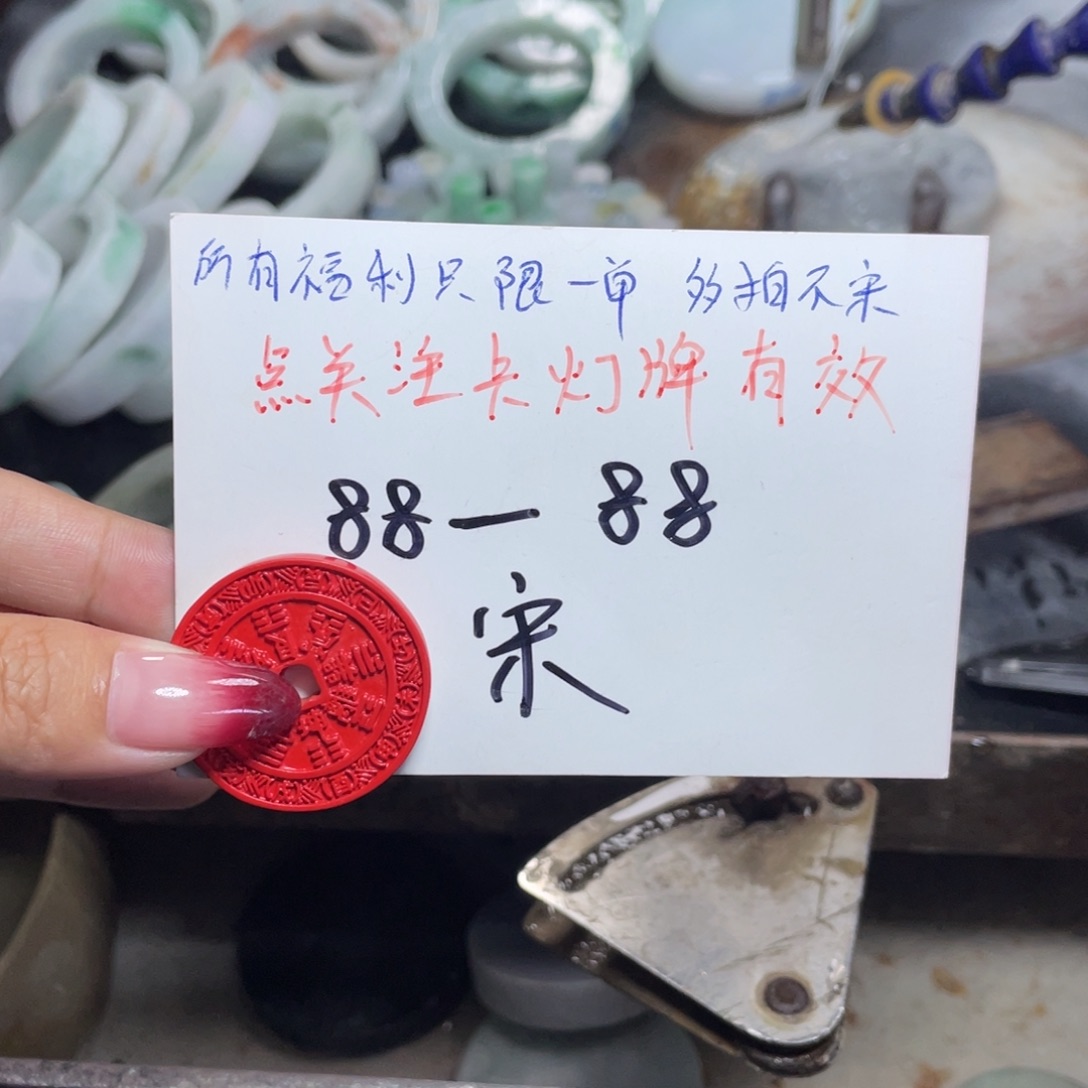 所有福利只限一单 多拍不宋
点关注卡灯牌有效
88一88
宋